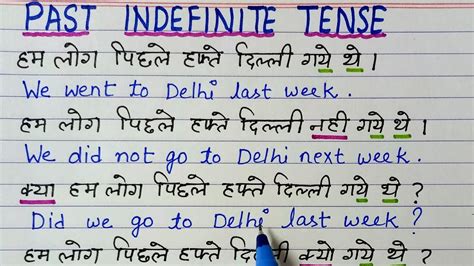 PAST INDEFINITE TENSE
हम लोग पिछले हफ्ते दिल्ली गये थे।
We went to Delhi last week.
हम लोग पिछले हफ्ते दिल्ली नही गये थे।
We did not go to Delhi next week.
क्या हम लोग पिछले हफ्ते दिल्ली गये थे?
Did we go to Delhi last week?
हम लोग पिछले हफ्ते दिल्ली क्यो गये थे?